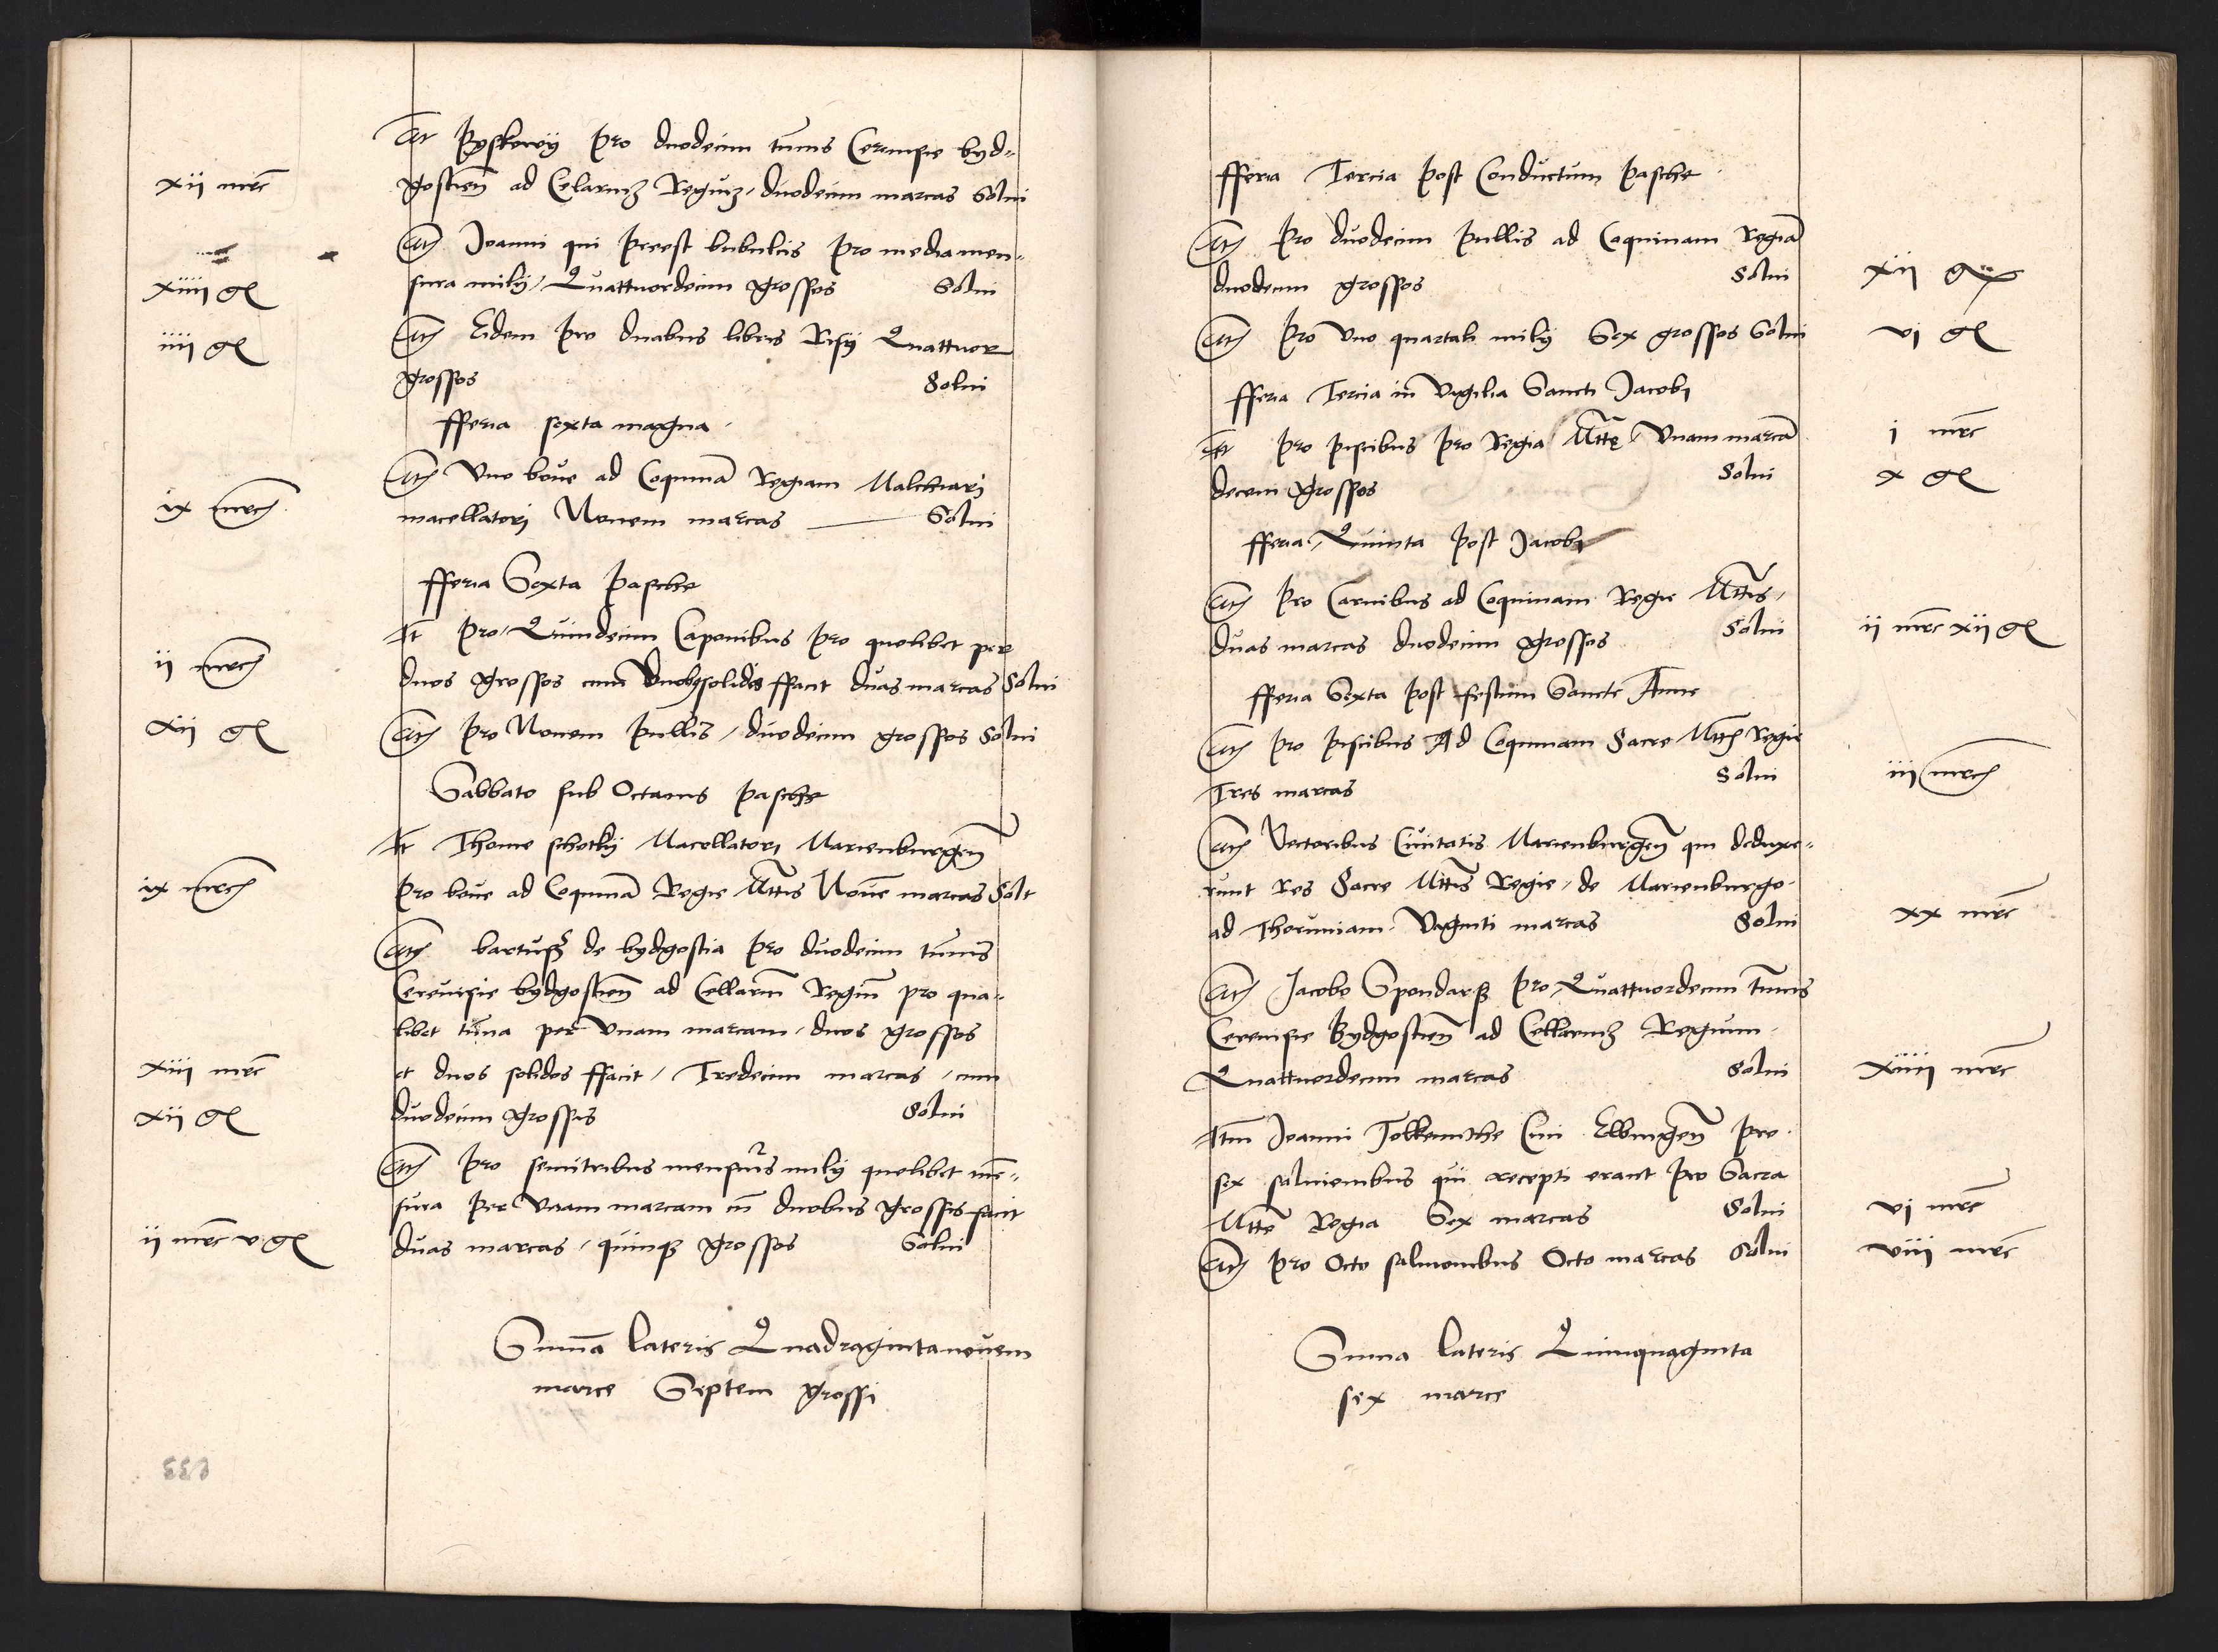 It Pyskowy pro duodecim tunnis Cerevisie byd-
xii mrc gostien ad Celarium Regium / duodecim marcas Solvi
Item Joanni qui preest bubulcis pro media men-
xiiii gr sura milij / Quattuordecim grossos Solvi
iiii gr Item Eidem pro duabus libris Risij Quattuor
grossos Solvi
fferia sexta magna
Item Uno bove ad Coquinā Regiam Malchiari
ix mrc macellatori Novem marcas Solvi
fferia Sexta Pasche
It pro Quindecim Caponibus pro quolibet per
ii mrc duos grossos cum duobus solidis ffacit duas marcas Solvi
xii gr Item pro Novem pullis / duodecim grossos Solvi
Sabbato sub Octavis pasche
It Thome schotky Macellatori Marienburgen
ix mrc pro bove ad Coquinā Regie Mttis Novē marcas Solt
Item bartusz de bydgostia pro duodecim tunnis
Cerevisie bydgostien ad Cellariū Regiū pro qua-
libet tūna per Unam marcam / duos grossos
xiii mrc et duos solidos ffacit / Tredecim marcas / cum
xii gr duodecim grossis Solvi
Item pro semitribus mensuris milij quolibet mē-
sura per Unam marcam cū duobus grossis facit
ii mrc v gr duas marcas / quinque grossos Solvi
Summa lateris Quadragintanovem
marce Septem grossi
fferia Tercia post Conductum pasche
Item pro duodecim pullis ad Coquinam Regiā
duodecim grossos Solvi xii gr
Item pro Uno quartali milij Sex grossos Solvi vi gr
fferia Tercia in Vigilia Sancti Jacobi
It pro piscibus pro Regia Mtte / Unam marcā i mrc
decem grossos Solvi x gr
fferia Quinta post Jacobi
Item pro Carnibus ad Coquinam Regie Mttis /
duas marcas duodecim grossos Solvi ii mrc xii gr
fferia Sexta post festum Sancte Anne
Item pro piscibus Ad Coquinam Sacre Mttis Regie
Tres marcas Solvi iii mrc
Item Vectoribus Civitatis Marienburgen qui deduxe-
runt res Sacre Mttis Regie / de Marienburgo
ad Thoruniam Viginti marcas Solvi xx mrc
Item Jacobo Spondarsz pro Quattuordecim Tunnis
Cerevisie Bydgostien ad Cellarium Regium
Quattuordecim marcas Solvi xiiii mrc
Itm Joanni Tolkemithe Civi Elbingen pro
sex salmonibus qui recepti erant pro Sacra
Mtte Regia Sex marcas Solvi vi mrc
Item pro Octo salmonibus Octo marcas Solvi viii mrc
Summa lateris Quinquaginta
sex marce